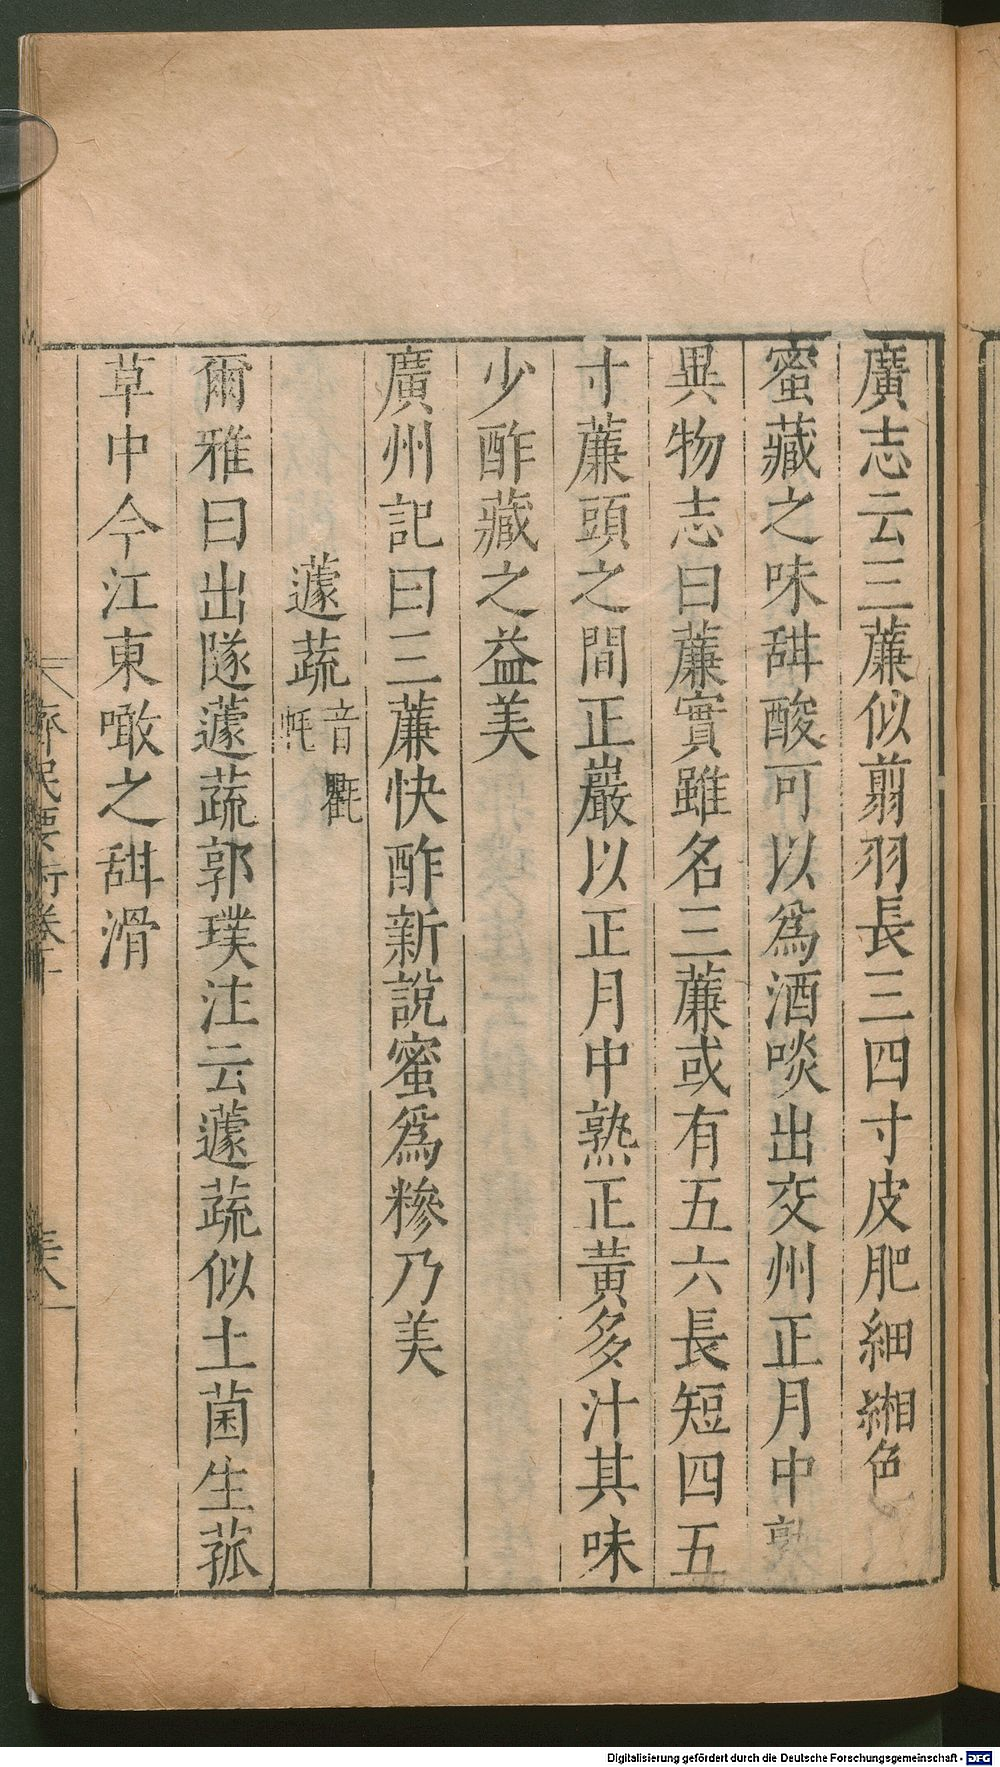 廣志云三薕似翦羽長三四寸皮肥細緗色
蜜藏之味甜酸可以爲酒啖出交州正月中熟
異物志曰薕實雖名三薕或有五六長短四五
寸薕頭之間正巖以正月中熟正黃多汁其味
少酢藏之益美
廣州記曰三薕快酢新說蜜爲糝乃美
蘧蔬音氍
爾雅曰出隧蘧蔬郭璞注云蘧蔬似土菌生菰
草中今江東噉之甜滑
齊民要術卷十
Digitalisierung gefördert durch die Deutsche Forschungsgemeinschaft - DFG